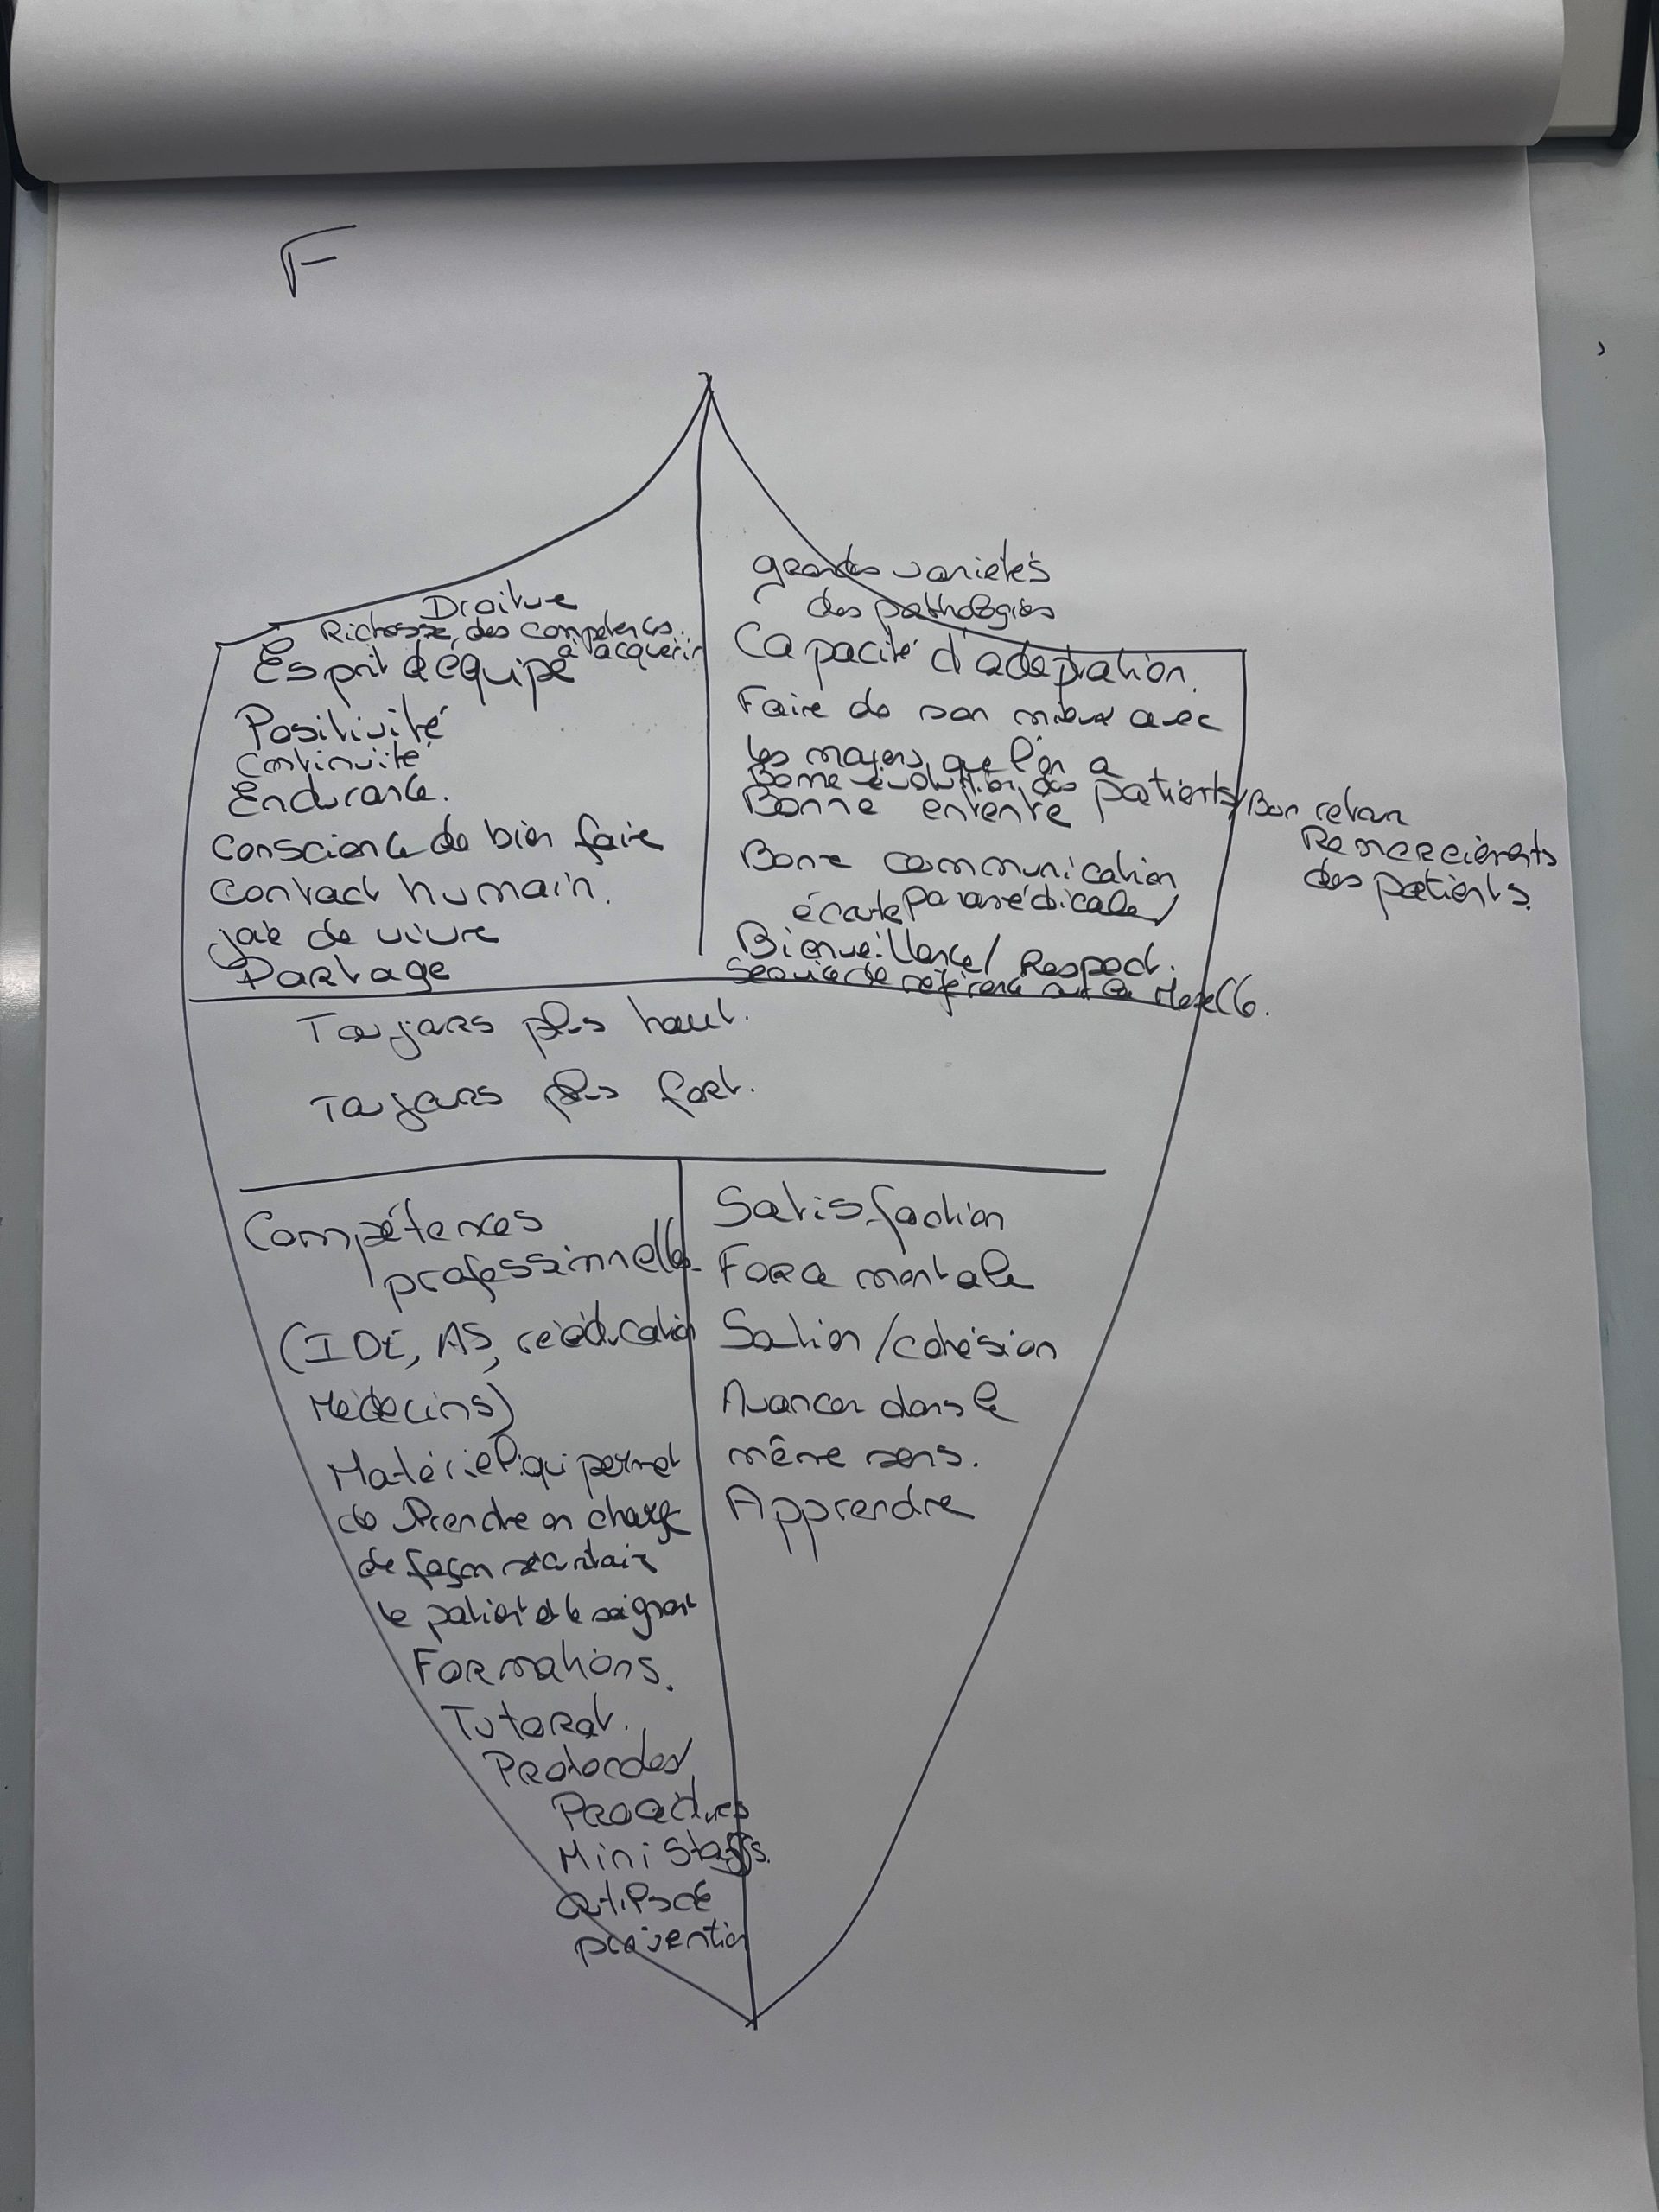 F
Droiture
Richesse, des compétences
à acquérir
Esprit d'équipe
Positivité
Continuité
Endurance.
Conscience de bien faire
Contact humain.
joie de vivre
Partage
grandes variétés
des pathologies
Capacité d'adaptation.
Faire de son mieux avec
les moyens que l'on a
Bonne évolution des patients/Bon retour
Remerciements
des patients.
Bonne entente
Bonne communication
écoute Paramédicale/
Bienveillance/ Respect.
Service de référence sur la Moselle.
Toujours plus haut.
Toujours plus fort.
Compétences
professionnelles
(IDE, AS, rééducation
Médecins)
Matériel qui permet
de Prendre en charge
de façon sécuritaire
le patient et le soignant
Formations.
Tutorat.
Protocoles/
Procédures
Mini Staffs.
prévention
Satisfaction
Force mentale
/cohésion
Avancer dans le
même sens.
Apprendre